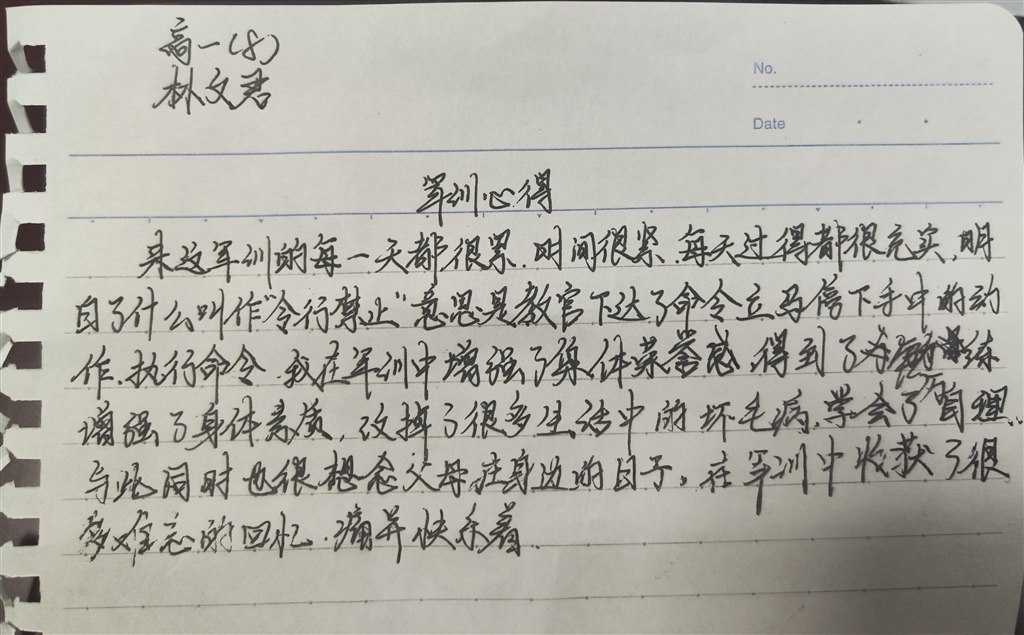 高一(8)
林文君
No.
Date
军训心得
来这军训的每一天都很累.时间很紧.每天过得都很充实,明
白了什么叫作"令行禁止"意思是教官下达了命令立马停下手中的动
作.执行命令.我在军训中增强了集体荣誉感.得到了 练
增强了身体素质,改掉了很多生活中的坏毛病,学会了 管理.
与此同时也很想念父母在身边的日子。在军训中收获了很
多难忘的回忆.痛并快乐着.